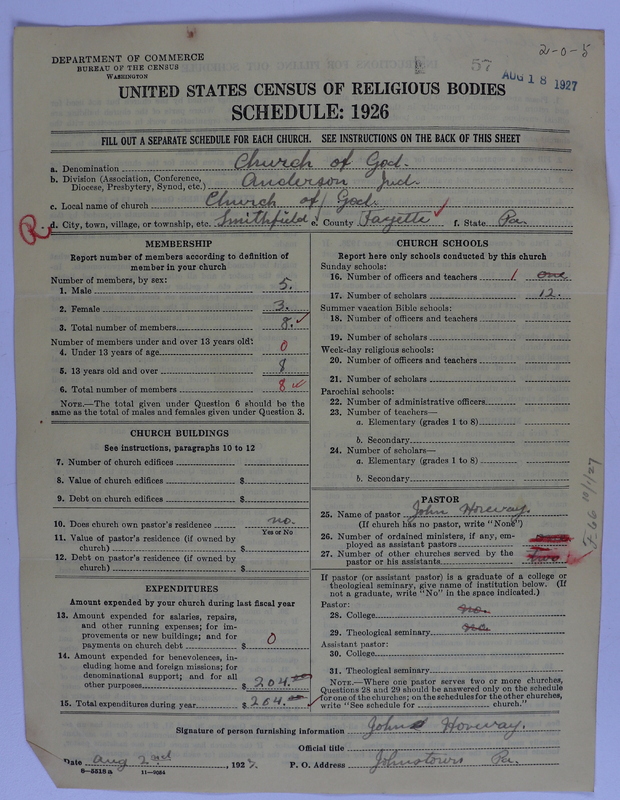 2-0-8
DEPARTMENT OF COMMERCE
BUREAU OF THE CENSUS
WASHINGTON
57
AUG 18 1927
UNITED STATES CENSUS OF RELIGIOUS BODIES
SCHEDULE: 1926
FILL OUT A SEPARATE SCHEDULE FOR EACH CHURCH. SEE INSTRUCTIONS ON THE BACK OF THIS SHEET
a. Denomination Church of God.
b. Division (Association, Conference, Diocese, Presbytery, Synod, etc.) Anderson Ind.
c. Local name of church Church of God.
R d. City, town, village, or township, etc. Smithfield e. County Fayette f. State Pa.
MEMBERSHIP
Report number of members according to definition of
member in your church
Number of members, by sex:
1. Male 5.
2. Female 3.
3. Total number of members 8.
Number of members under and over 13 years old:
4. Under 13 years of age 0
5. 13 years old and over 8
6. Total number of members 8
NOTE.—The total given under Question 6 should be
same as the total of males and females given under Question 3.
CHURCH BUILDINGS
See instructions, paragraphs 10 to 12
7. Number of church edifices
8. Value of church edifices $
9. Debt on church edifices $
10. Does church own pastor's residence no.
Yes or No
11. Value of pastor's residence (if owned by
church) $
12. Debt on pastor's residence (if owned by
church) $
EXPENDITURES
Amount expended by your church during last fiscal year
13. Amount expended for salaries, repairs,
and other running expenses; for im-
provements or new buildings; and for
payments on church debt $ 0
14. Amount expended for benevolences, in-
cluding home and foreign missions; for
denominational support; and for all
other purposes $ 204.00
15. Total expenditures during year $ 204.00
CHURCH SCHOOLS
Report here only schools conducted by this church
Sunday schools:
16. Number of officers and teachers 1 one
17. Number of scholars 12.
Summer vacation Bible schools:
18. Number of officers and teachers
19. Number of scholars
Week-day religious schools:
20. Number of officers and teachers
21. Number of scholars
Parochial schools:
22. Number of administrative officers
23. Number of teachers—
a. Elementary (grades 1 to 8)
b. Secondary
24. Number of scholars—
a. Elementary (grades 1 to 8)
b. Secondary
PASTOR
25. Name of pastor John Hoveway.
(If church has no pastor, write "None")
26. Number of ordained ministers, if any, em-
ployed as assistant pastors
27. Number of other churches served by the
pastor or his assistants Two
If pastor (or assistant pastor) is a graduate of a college or
theological seminary, give name of institution below. (If
not a graduate, write "No" in the space indicated.)
Pastor:
28. College no.
29. Theological seminary no.
Assistant pastor:
30. College
31. Theological seminary
NOTE.—Where one pastor serves two or more churches,
Questions 28 and 29 should be answered only on the schedule
for one of the churches; on the schedules for the other churches,
write "See schedule for church."
Signature of person furnishing information John Hoveway.
Official title
Date Aug 2nd, 1927. P. O. Address Johnstown Pa.
8-5518a 11-9054